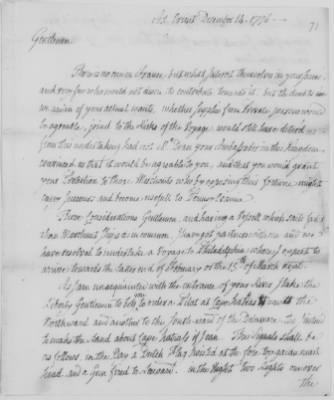 At Brest December 14. 1776
71
Gentlemen
There is no one in France, but what interest themselves in your favor
and very few who would not desire to contribute towards it. but the dread to see
of your actual wants. whether supplies from private persons would
be agreable, joined to the Risks of the Voyage, would still have deterd me
from this undertaking had not Mr Dean your Ambassador in this Kingdom
convinced us that it would be agreable to you, and that you would grant
your Protection to those Merchants who by exposing their fortune might
come and become usefull to Pennsylvania
These Considerations Gentlemen, and having a Vessell which sails for
I have got and
have resolved to undertake a Voyage to Philadelphia where I expect to
arrive towards the latter end of February or the 15th of March next.
As I am unacquainted with the entrance of your River I take the
Liberty Gentlemen to beg to order a Pilot at Cape to the
Northward and another to the South-ward of the Delaware. As I intend
to make the Land about Cape The Signals shall be
as follows, in the Day a Dutch Flag hoisted at the fore top galan mast
head, and a Gun fired to Leeward. in the Night two Lights one over
the